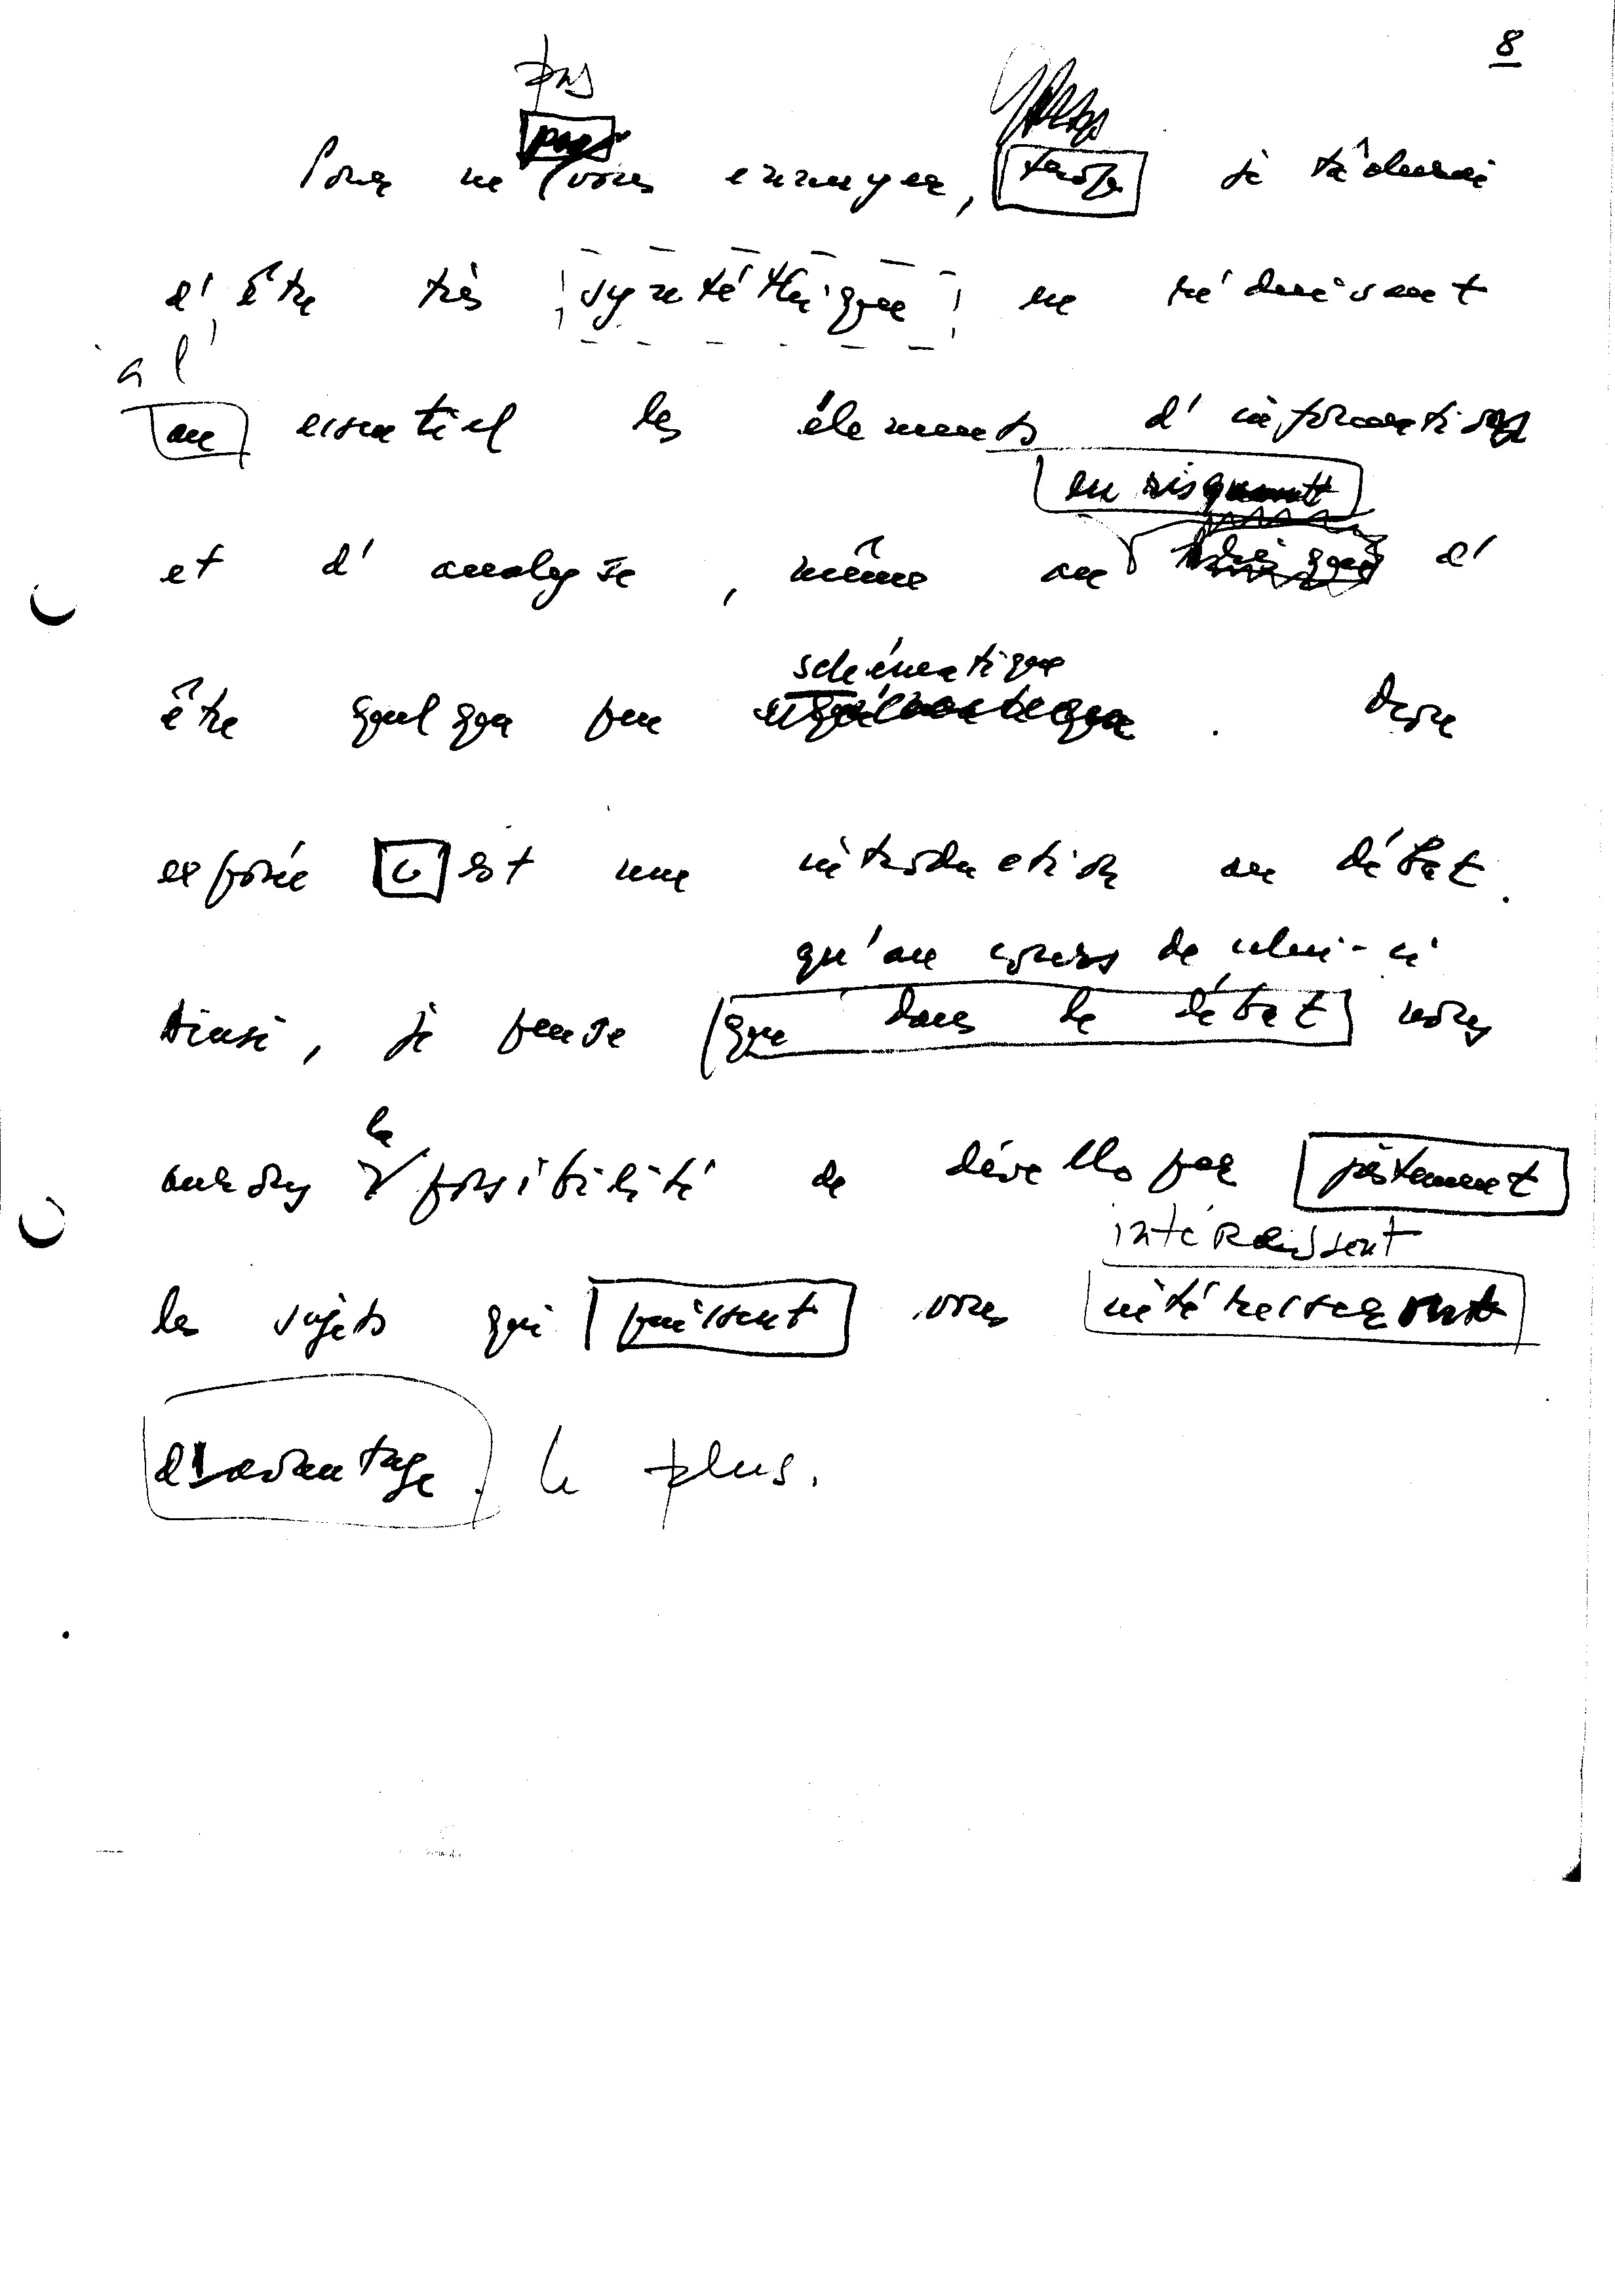 8
pas
pas
Pour ne vous ennuyer, trop je tâcherai
d'être très synthéthique en réduisant
à l'
au essentiel les éléments d'information
en risquant
et d'analyse, même au risque d'
être quelque peu
schématique
exposée C est une introduction au débat.
qu'au cours de celui-ci
Ainsi, je pense que dans le débat nous
la
aurons possibilité de dévellopер justement
intéressent
les sujets qui puissent vous
davantage. le plus.